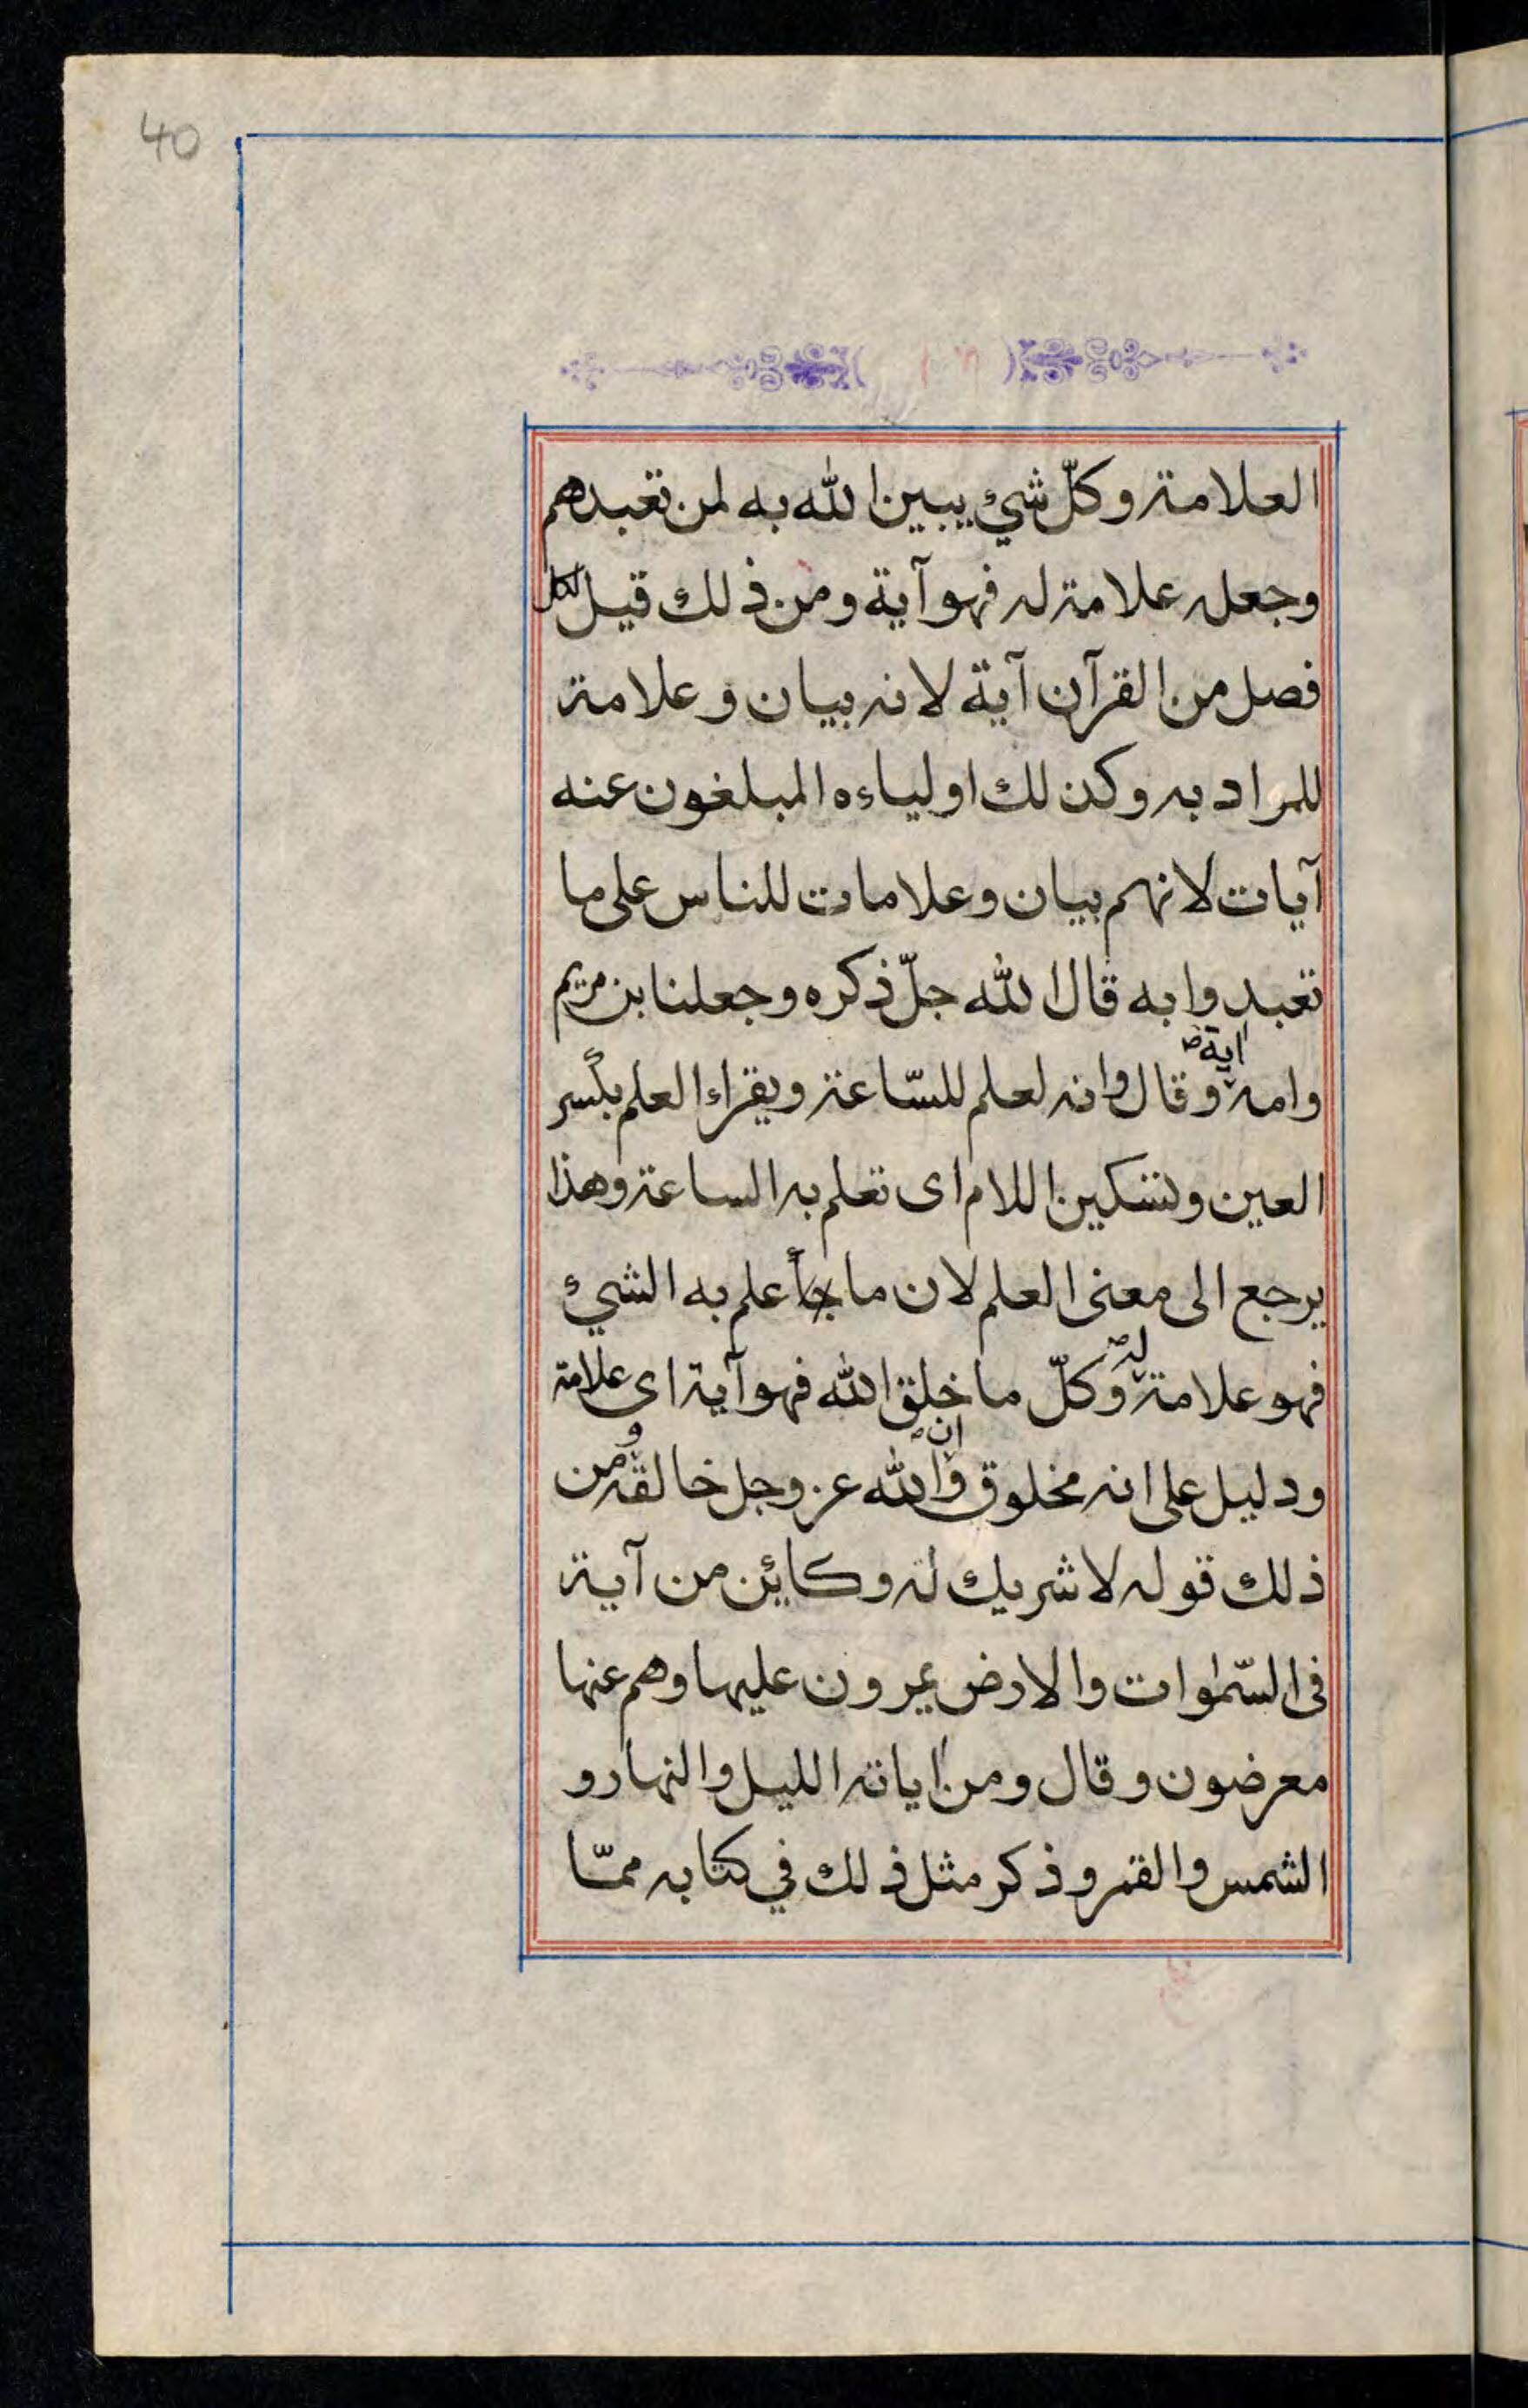 40
العلامة وكلّ شيئ يبين الله به لمن تعبدهم
وجعله علامة له فهو آية ومن ذلك قيل لكل
فصل من القرآن آية لانه بيان وعلامة
للمراد به وكذلك اولياءه المبلغون عنه
آيات لانهم بيان وعلامات للناس على ما
تعبدوا به قال الله جلّ ذكره وجعلنا بن مريم
وامه اية وقال وانه لعلم للسّاعة ويقراء العلم بكسر
العين وتسكين اللام اى تعلم به الساعة وهذا
يرجع الى معنى العلم لان ما علم به الشيئ
فهو علامة له وكلّ ما خلق الله فهو آية اى علامة
ودليل على انه مخلوق وان الله عز وجل خالقه ومن
ذلك قوله لا شريك له وكايئن من آية
فى السّمٰوات والارض يمرون عليها وهم عنها
معرضون وقال ومن اياته الليل والنهار و
الشمس والقمر وذكر مثل ذلك في كتابه ممّا